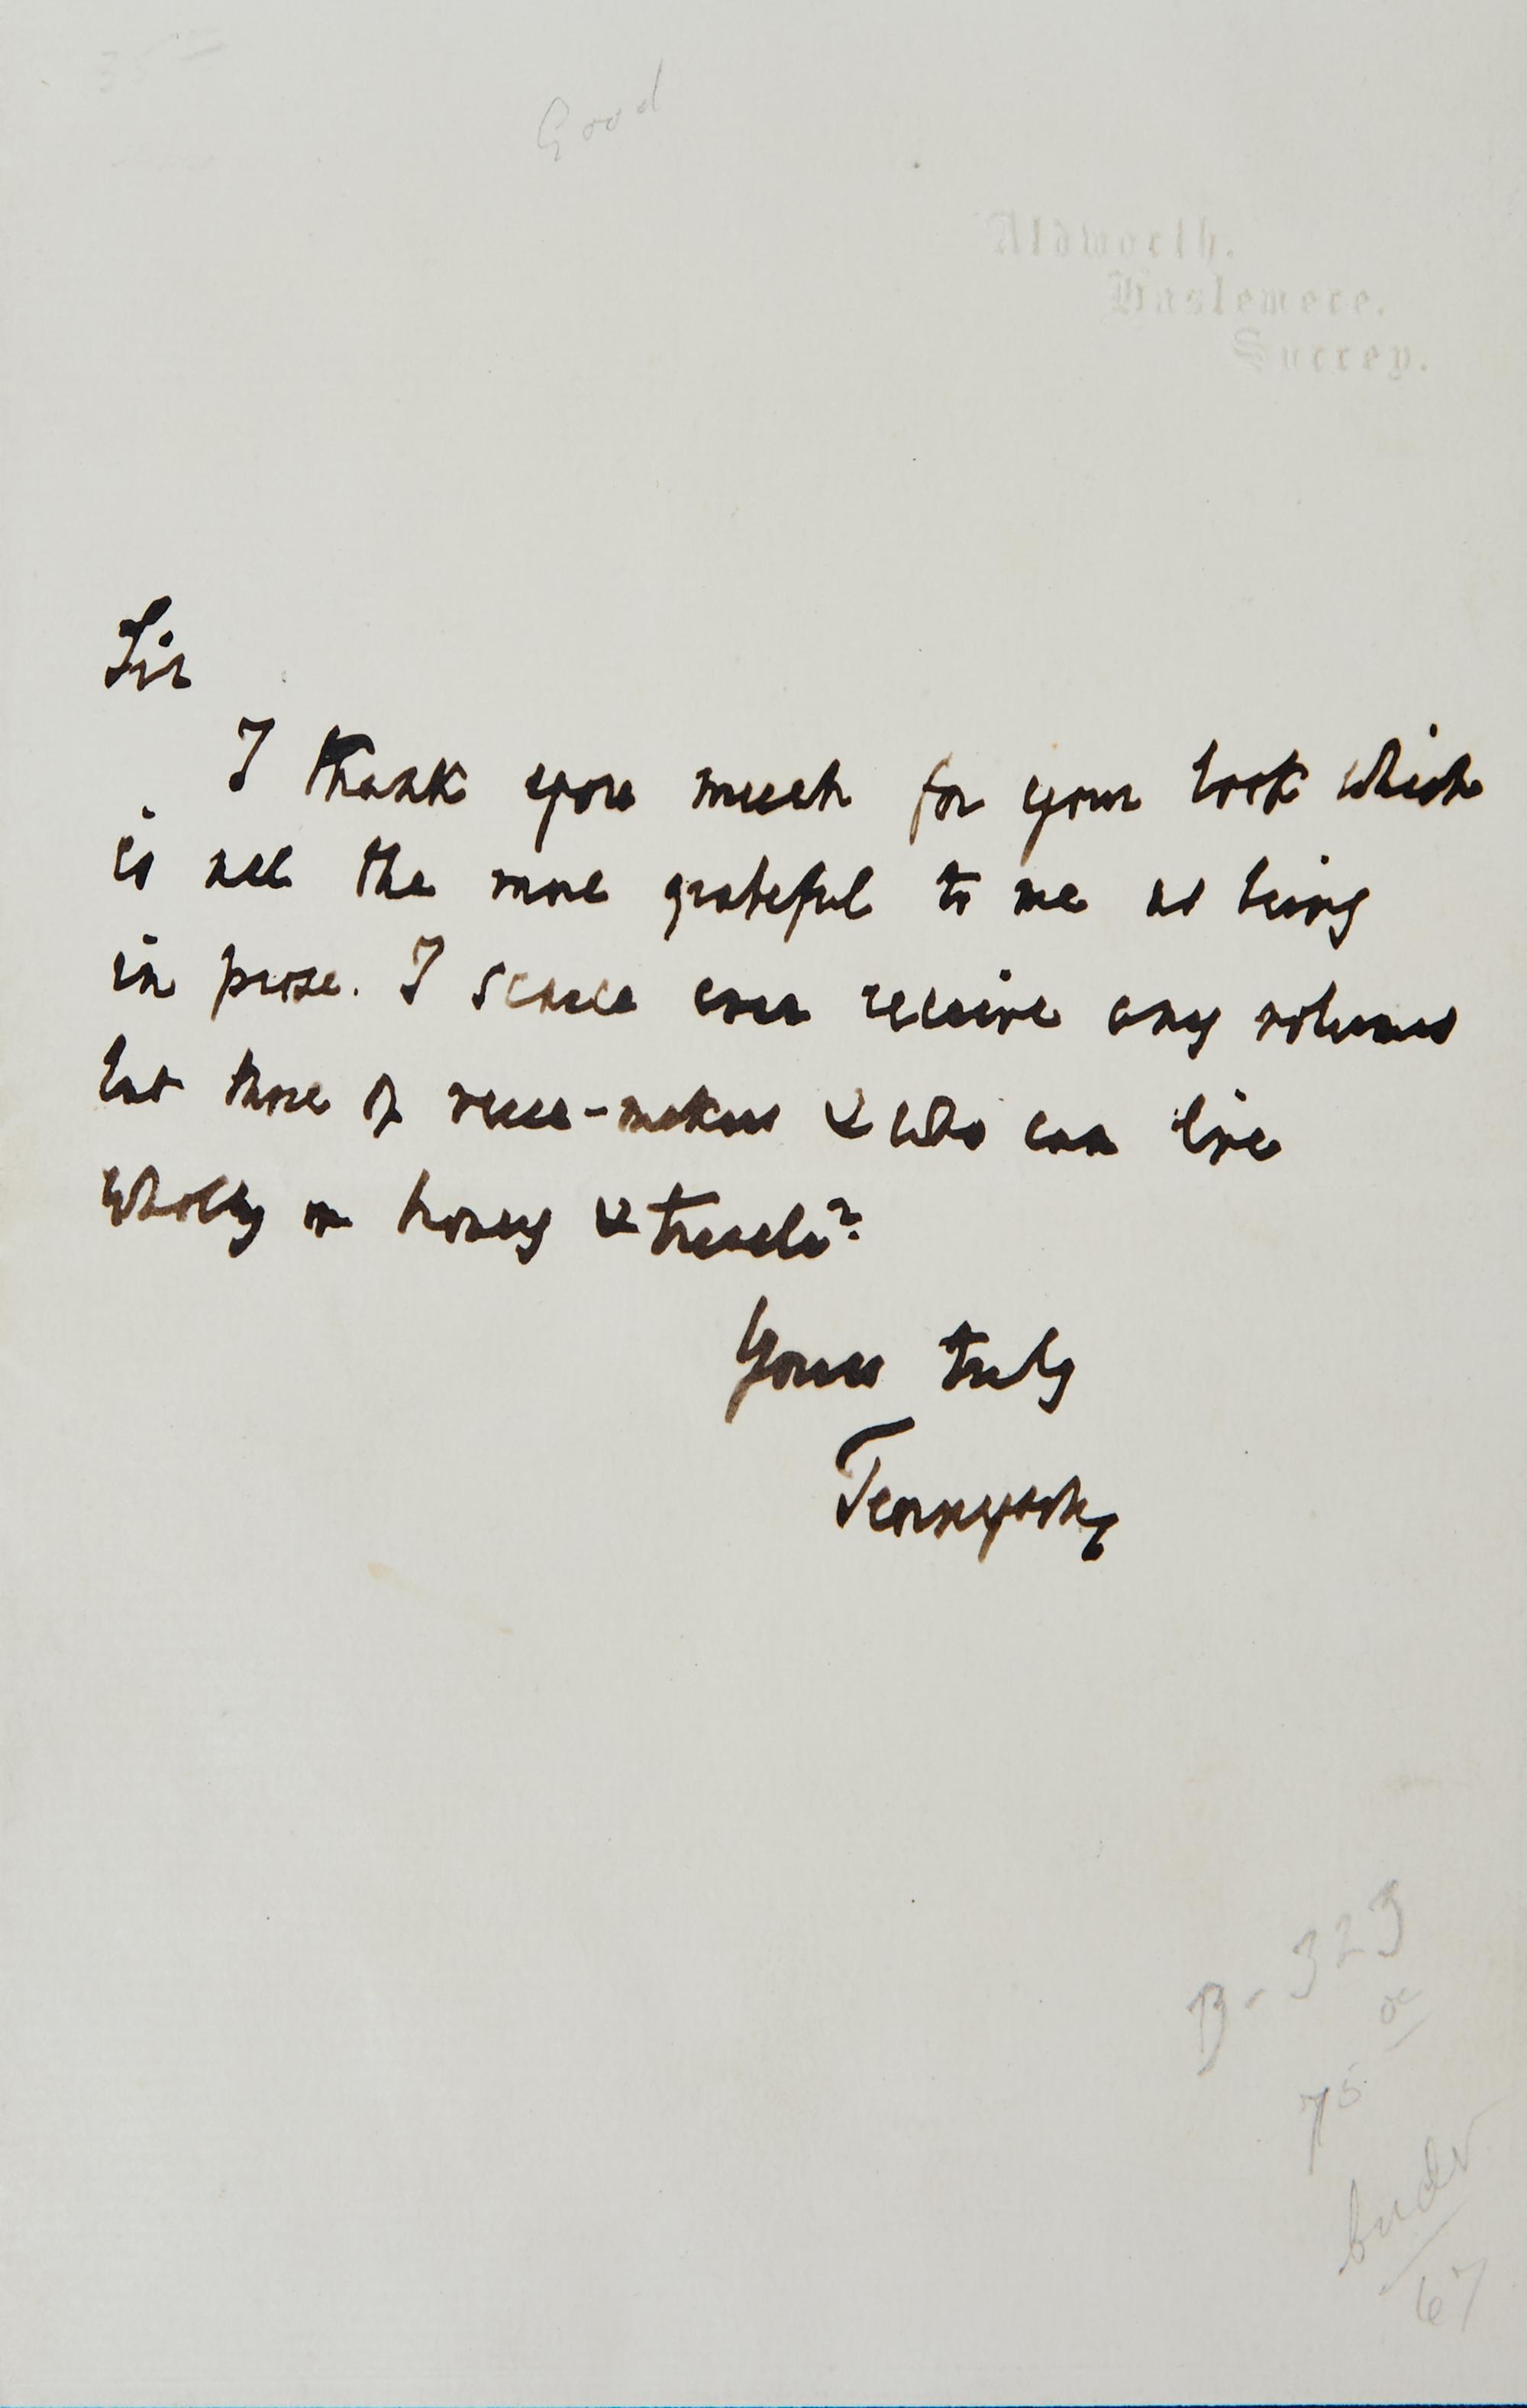 35
Good
Aldworth.
Haslemere.
Surrey.
Sir
I thank you much for your book which
is all the more grateful to me as being
in prose. I scarce ever receive any volumes
but those of verse-makers & who can live
wholly on honey & treacle?
Yours truly
Tennyson
B-323
75
67